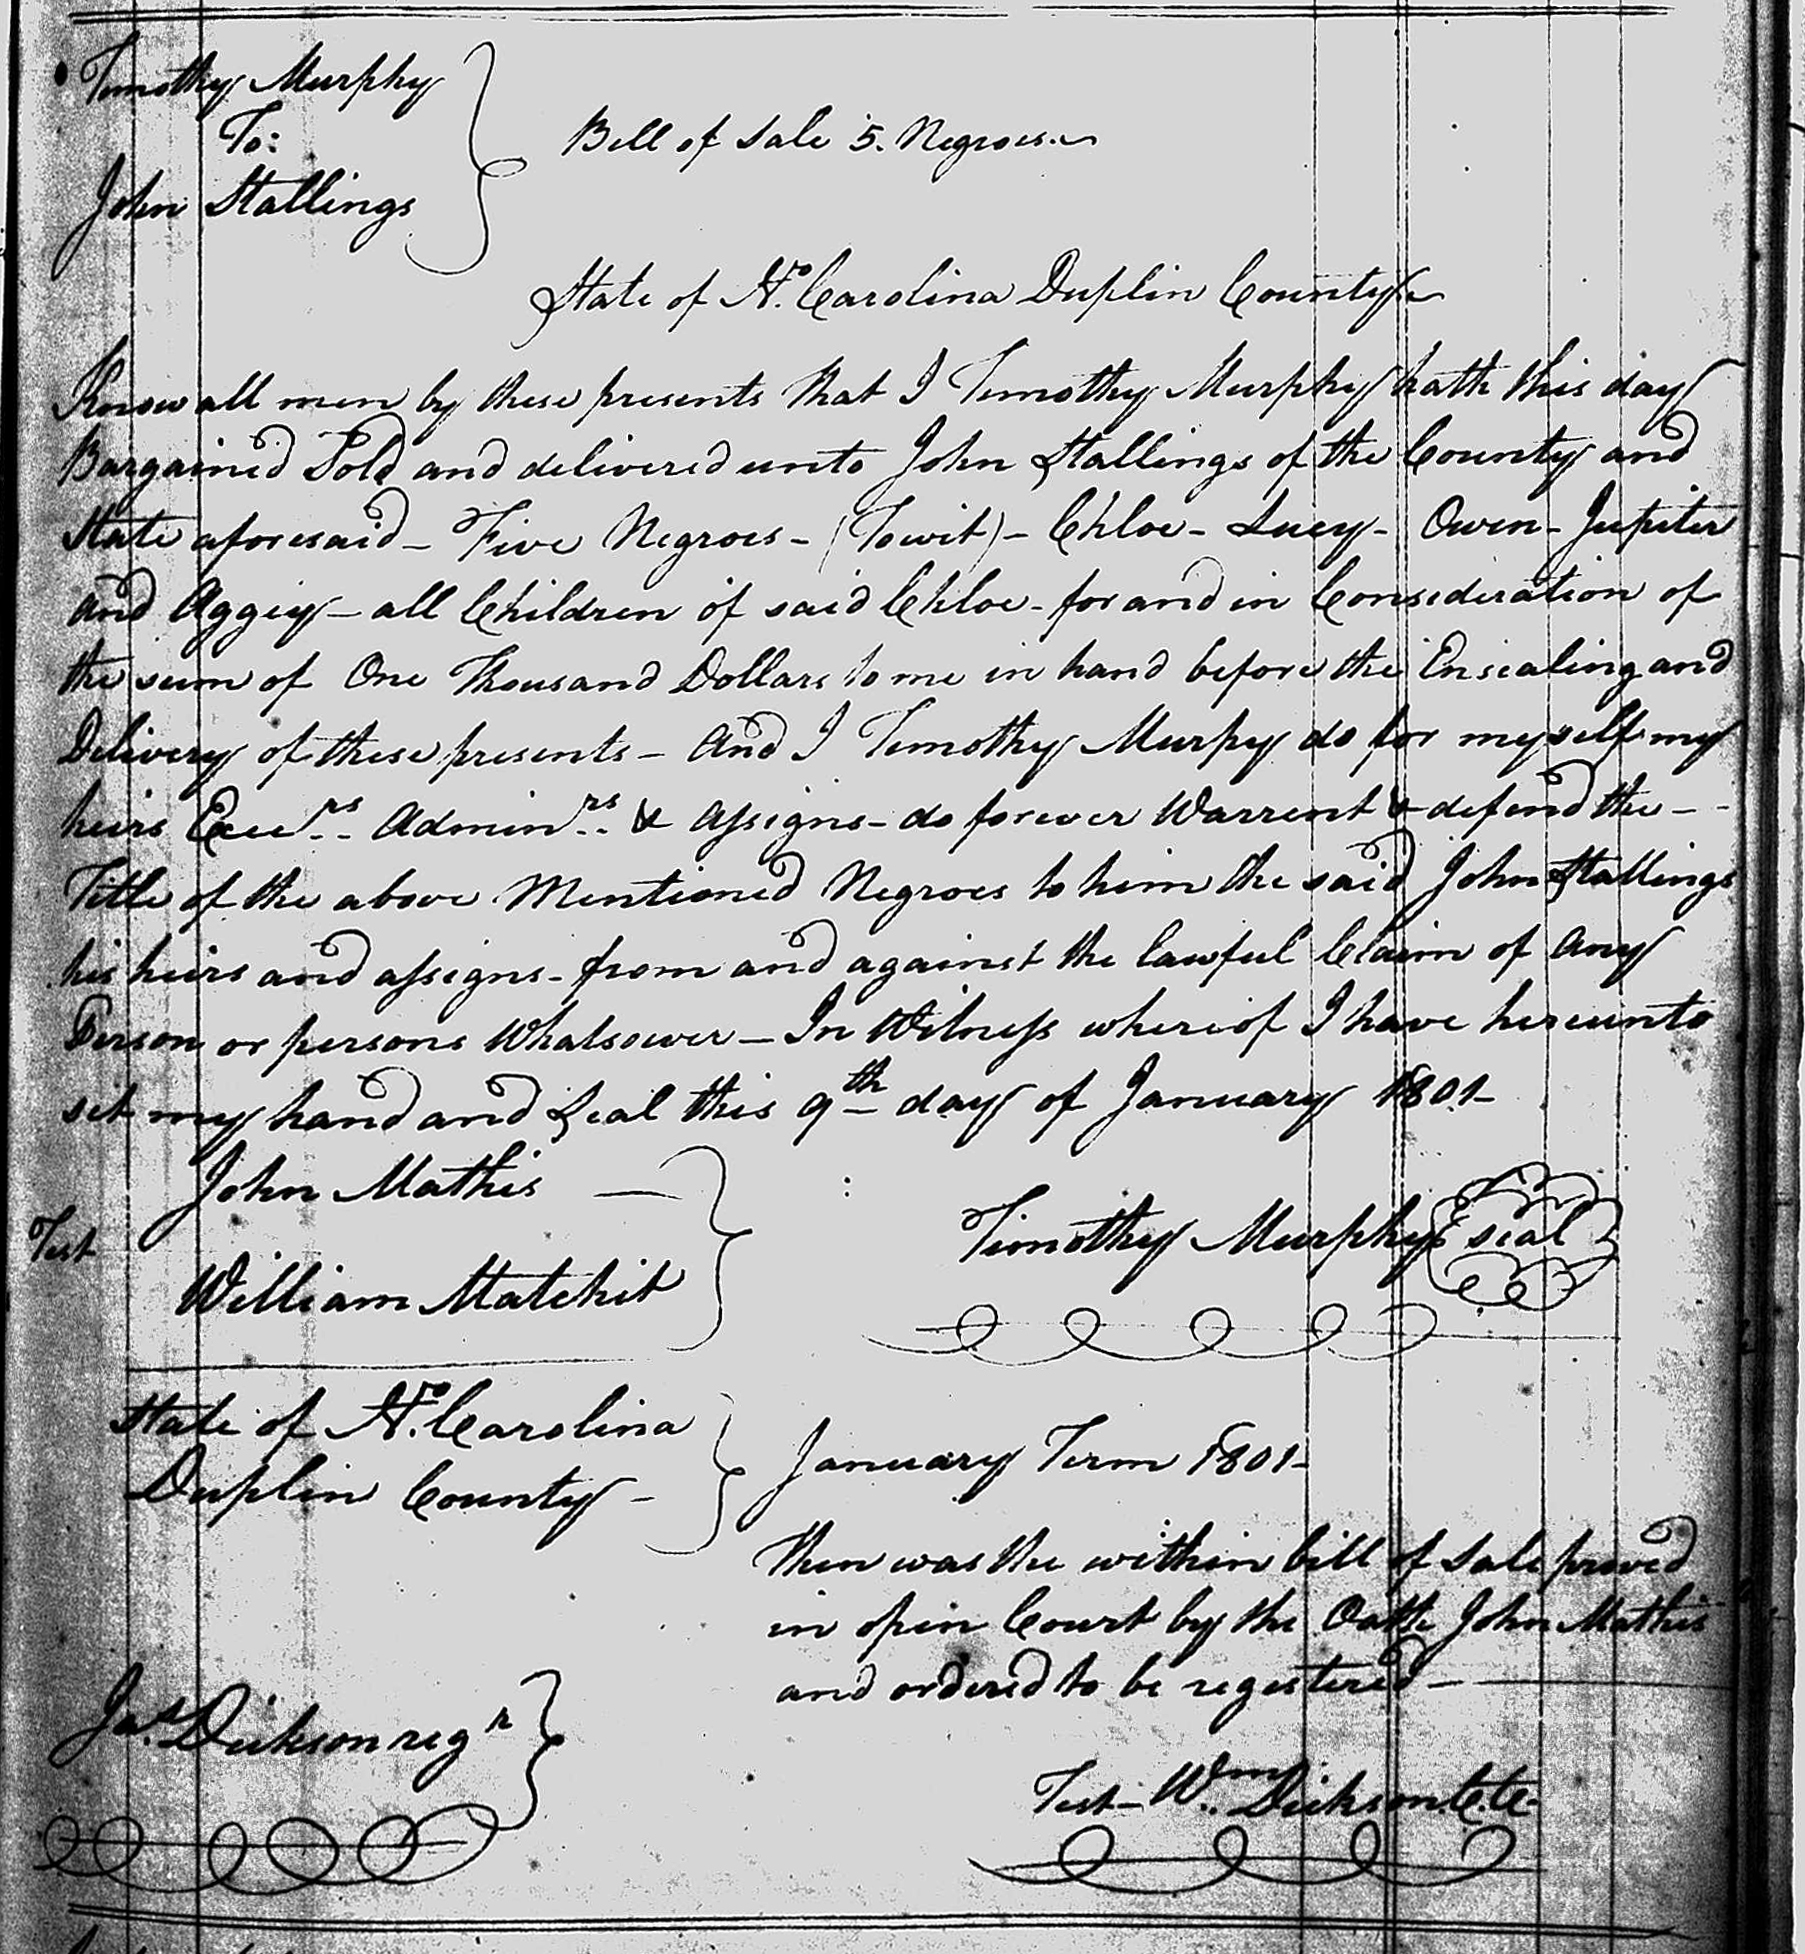 Timothy Murphy
To:
John Stallings
Bill of Sale 5. Negroes.
State of No. Carolina Duplin County
Know all men by these presents that I Timothy Murphy hath this day
Bargained Sold and delivered unto John Stallings of the County and
State aforesaid - Five Negroes - (Towit) - Chloe - Lucy - Owen - Jupiter
and Aggey - all Children of said Chloe - for and in Consideration of
the sum of One Thousand Dollars to me in hand before the Ensealing and
Delivery of these presents - And I Timothy Murpy do for myself my
heirs Exers. Adminrs. & Assigns - do forever Warrent & defend the - -
Title of the above Mentioned Negroes to him the said John Stallings
his heirs and assigns - from and against the lawful Claim of any
Person or persons Whatsoever - In Witness whereof I have hereunto
set my hand and Seal this 9th day of January 1801 -
John Mathis
Test
William Matchit
Timothy Murphy seal
State of No. Carolina
Duplin County -
January Term 1801 -
then was the within bill of Sale proved
in open Court by the Oath John Mathis
and ordered to be registered -
Jas. Dickson regr
Test - Wm. Dickson C.C.